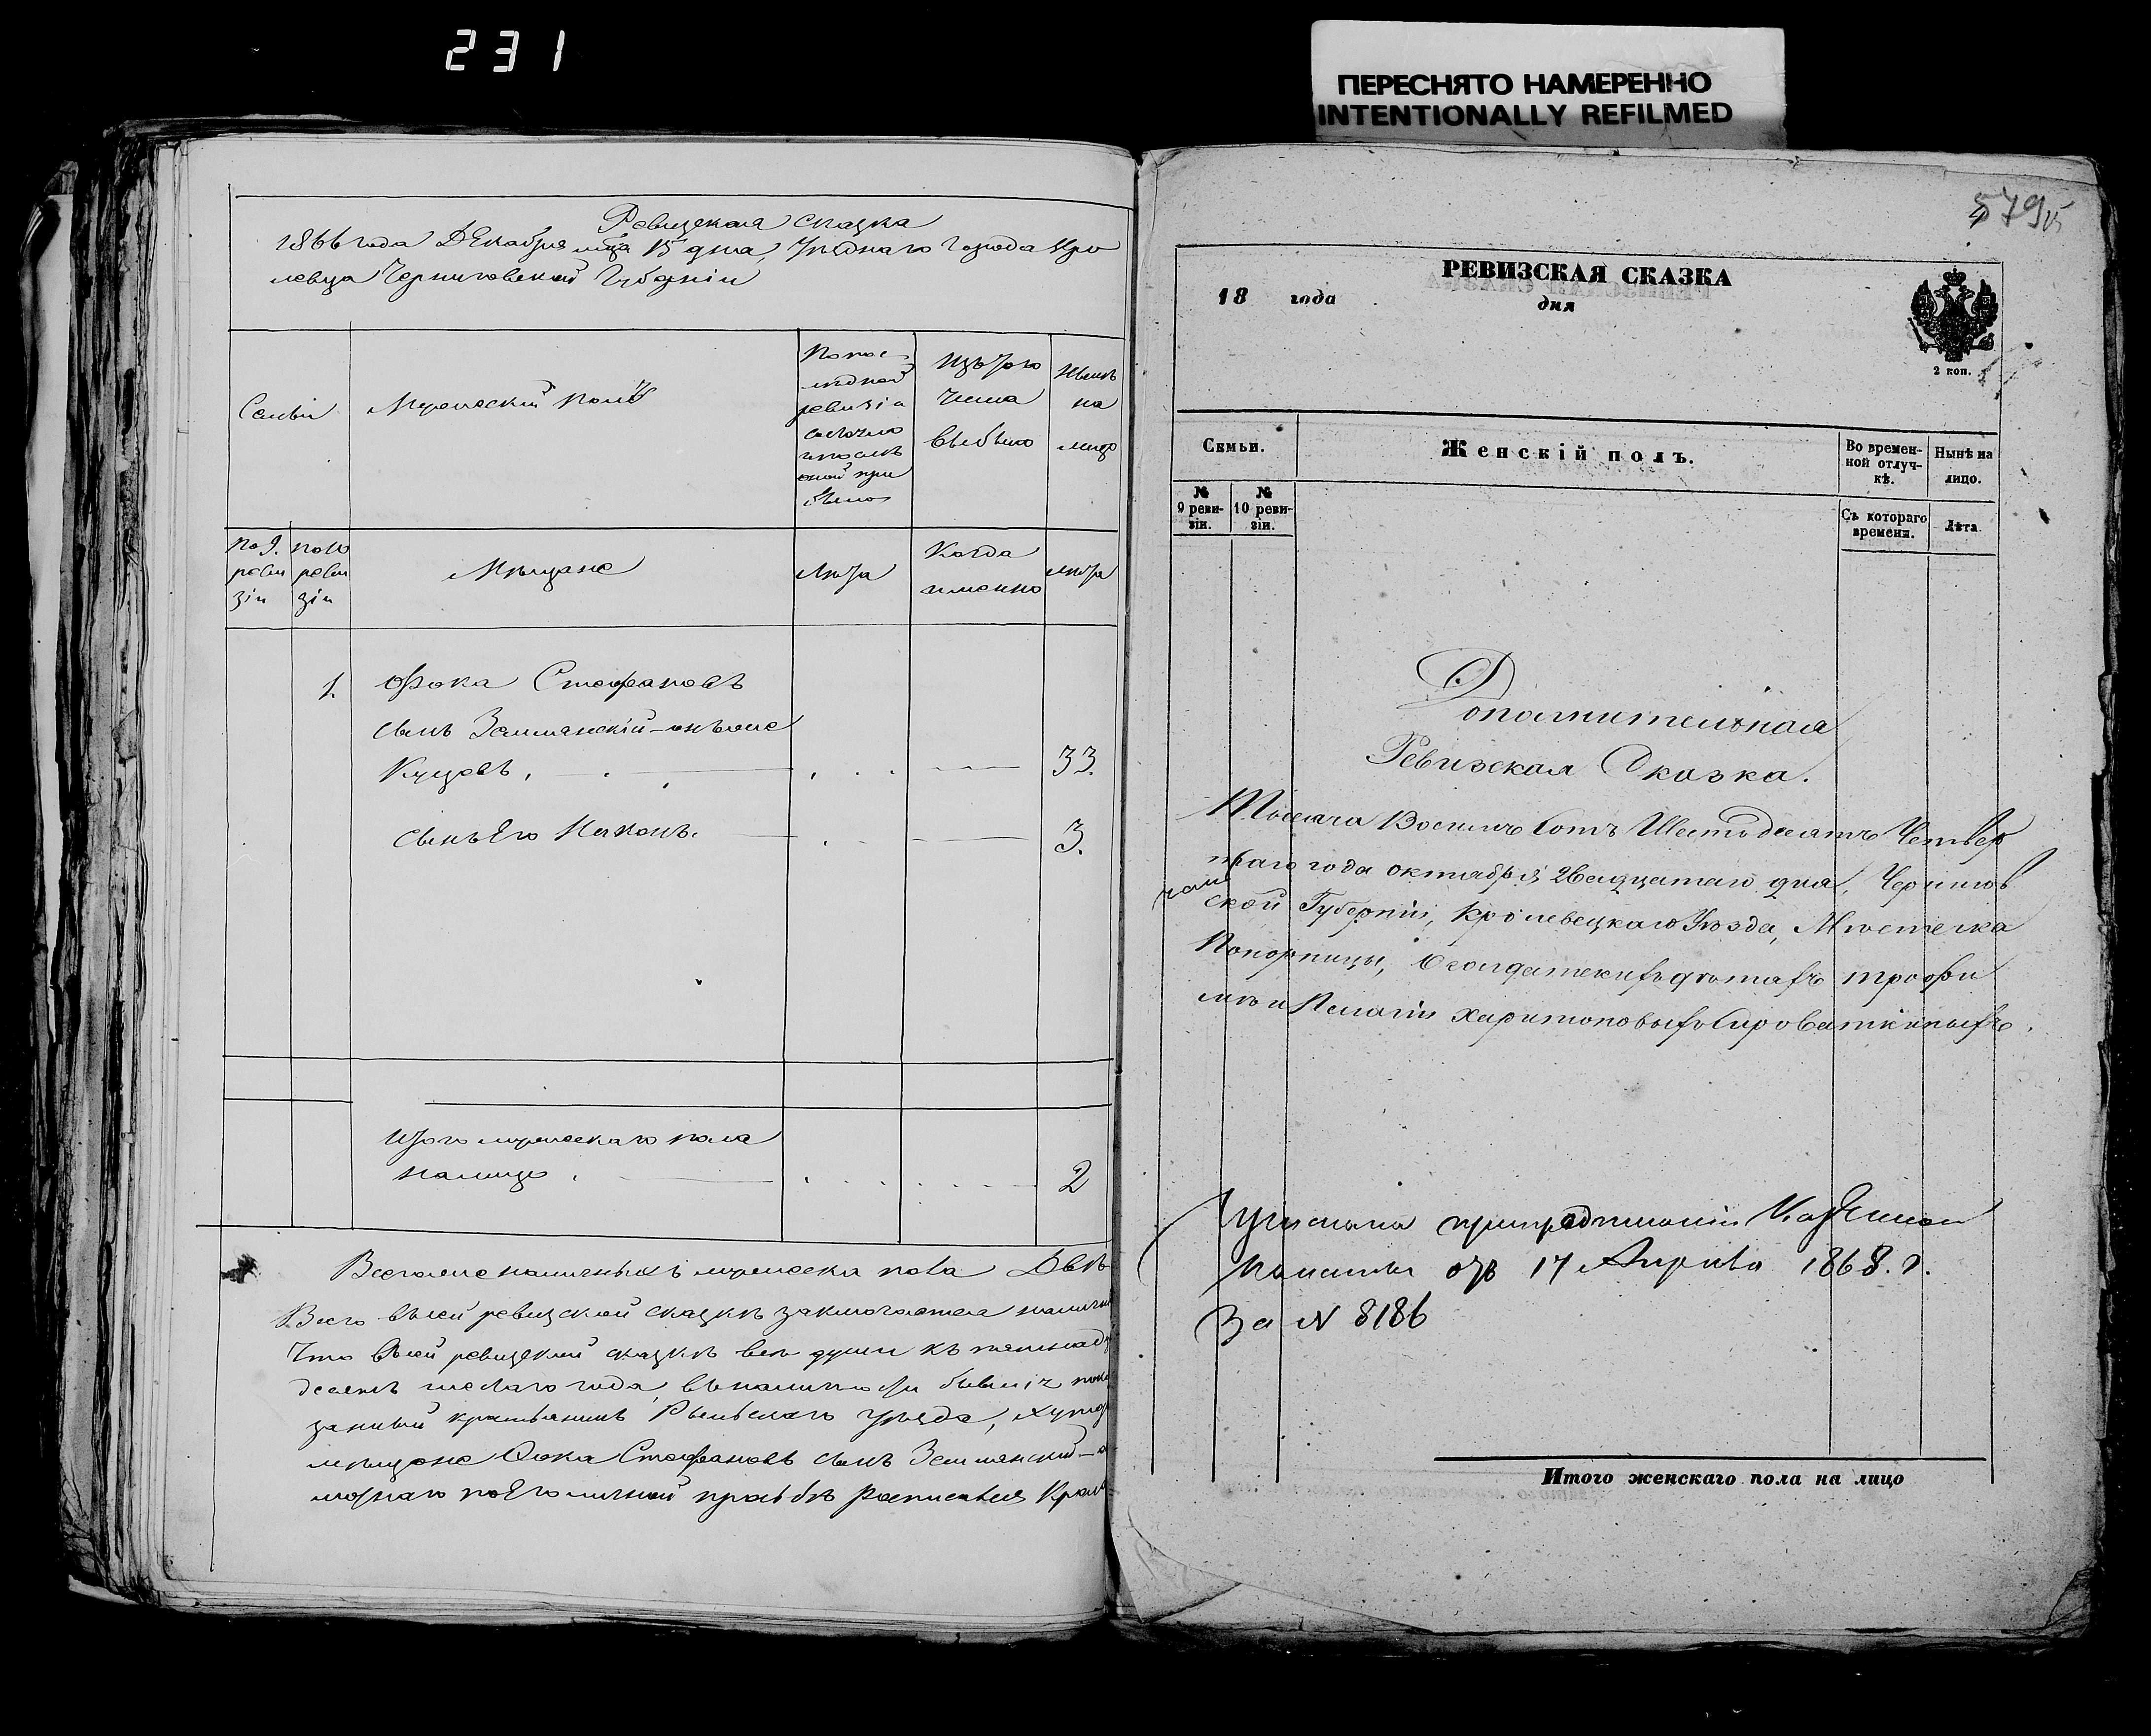 231
ПЕРЕСНЯТО НАМЕРЕННО
INTENTIONALLY REFILMED
Ревизская сказка
1866 года Декабря мца 15 дня, Уезднаго города Кро
левца Черниговской Губерніи
Семьи
Мужескій полъ
По пос-
ледней
ревизіи
состояло
и после
оной при
было
Изъ того
числа
выбыло
Нынѣ
на
лицо
По 9.
реви
зіи
по 10
реви
зіи
Мѣщане
Лѣта
Когда
именно
Лѣта
1.
Фока Стефановъ
сынъ Землянскій-онъ же
Куцовъ. 33.
сынъ Его Никонъ. 3.
Итого мужескаго пола
налицо 2
Всего же наличныхъ мужеска пола Двѣ
Всего въ сей ревизской сказкѣ заключается
Что въ сей ревизской сказкѣ все души къ
десятъ шестаго года, въ наличности бывшіе
занный крестьянинъ Рыльскаго уѣзда,
мѣщане Фока Стефановъ сынъ Землянский-
по Его личной прозьбѣ росписался
579
РЕВИЗСКАЯ СКАЗКА
18 года дня
2 коп.
Семьи.
Женскій полъ.
Во времен-
ной отлуч-
кѣ.
Нынѣ на
лицо.
№
9 реви-
зіи.
№
10 реви-
зіи.
Съ котораго
времени.
Лѣта
Дополнительная
Ревизская Сказка.
Тысяча Восемь Сотъ Шестьдесятъ Четвер
таго года октября двадцатаго дня, Чернигов
ской Губерніи, Кролевецкаго Уѣзда, Мѣстечка
Понорницы, О солдатскихъ дѣтяхъ Трофи
мѣ и Пелагіи Харитоновыхъ Сироваткиныхъ.
при предписаніи Казенной
Палаты отъ 17 Апрѣля 1868. г.
За № 8186
Итого женскаго пола на лицо